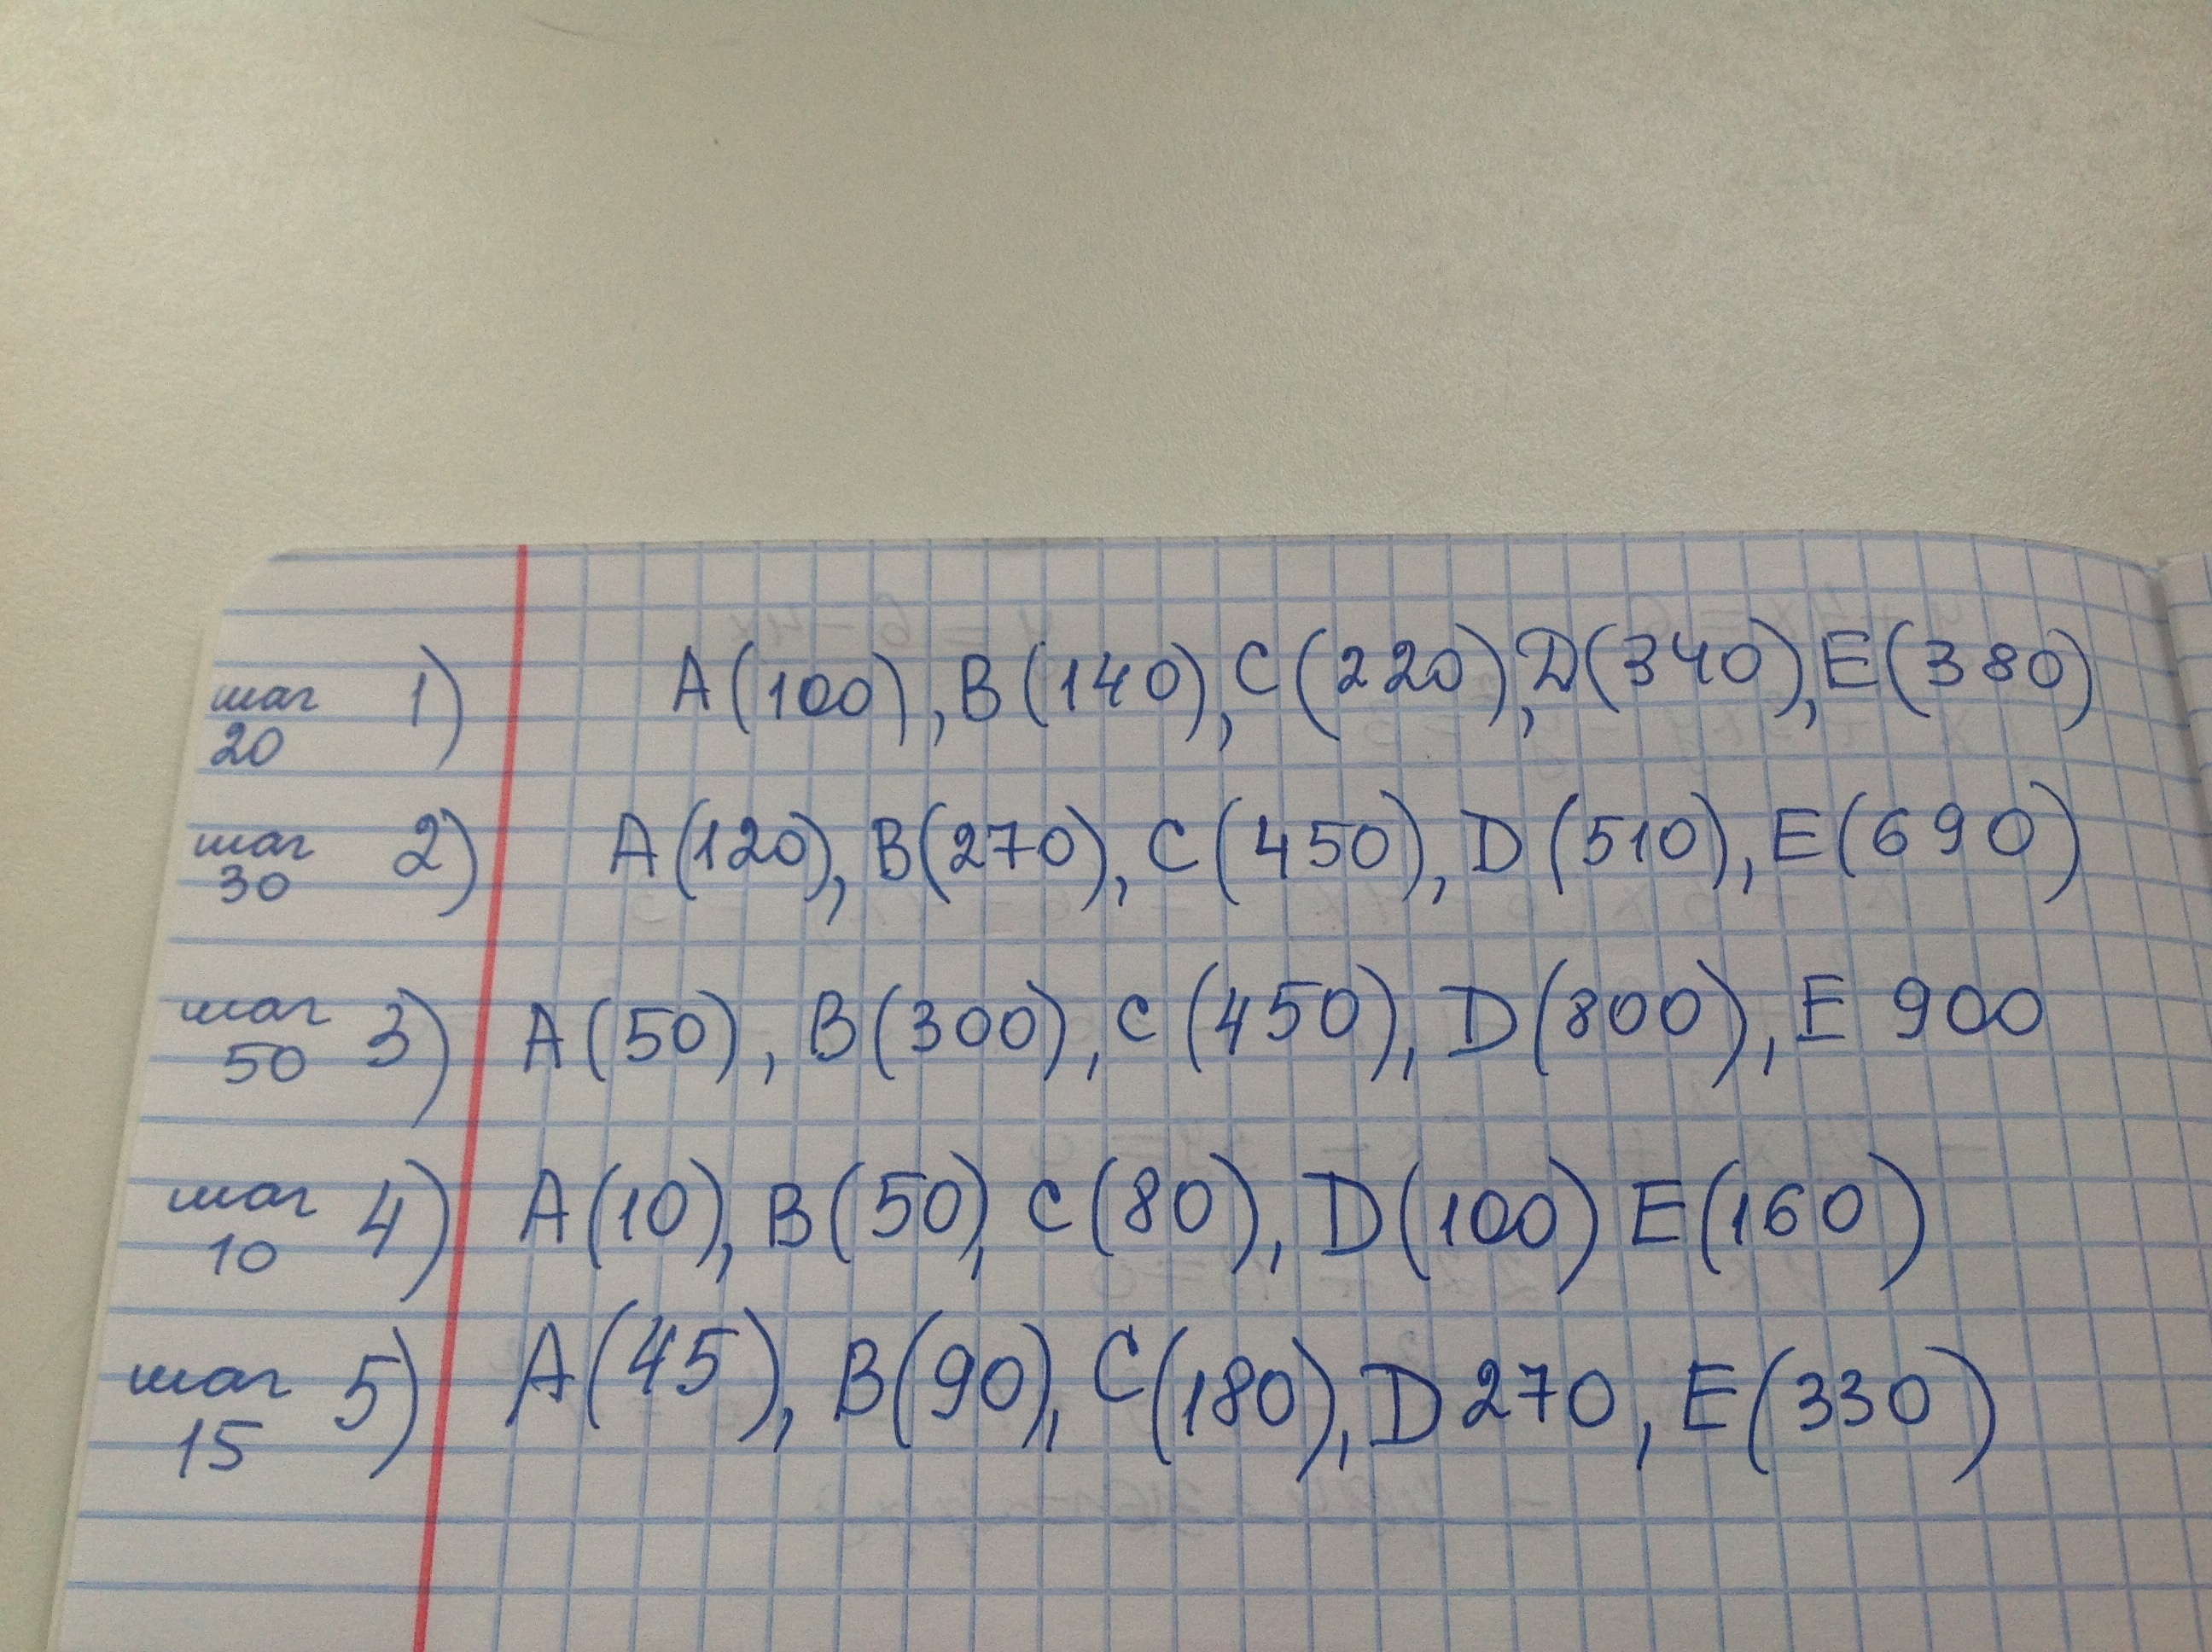 шаг 20 1) A(100), B(140), C(220), D(340), E(380)
шаг 30 2) A(120), B(270), C(450), D(510), E(690)
шаг 50 3) A(50), B(300), C(450), D(800), E 900
шаг 10 4) A(10), B(50), C(80), D(100) E(160)
шаг 15 5) A(45), B(90), C(180), D 270, E(330)